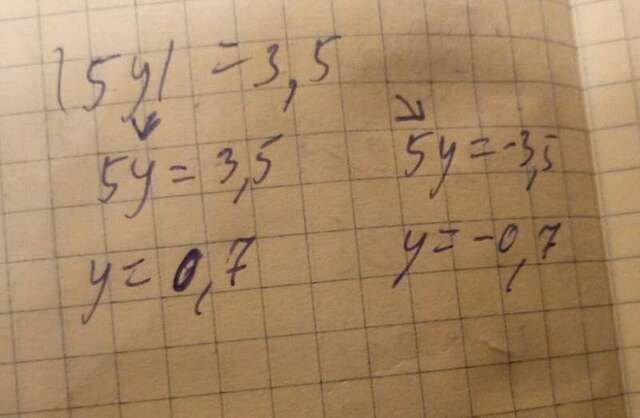 |5y| = 3,5
5y = 3,5
y = 0,7
5y = -3,5
y = -0,7